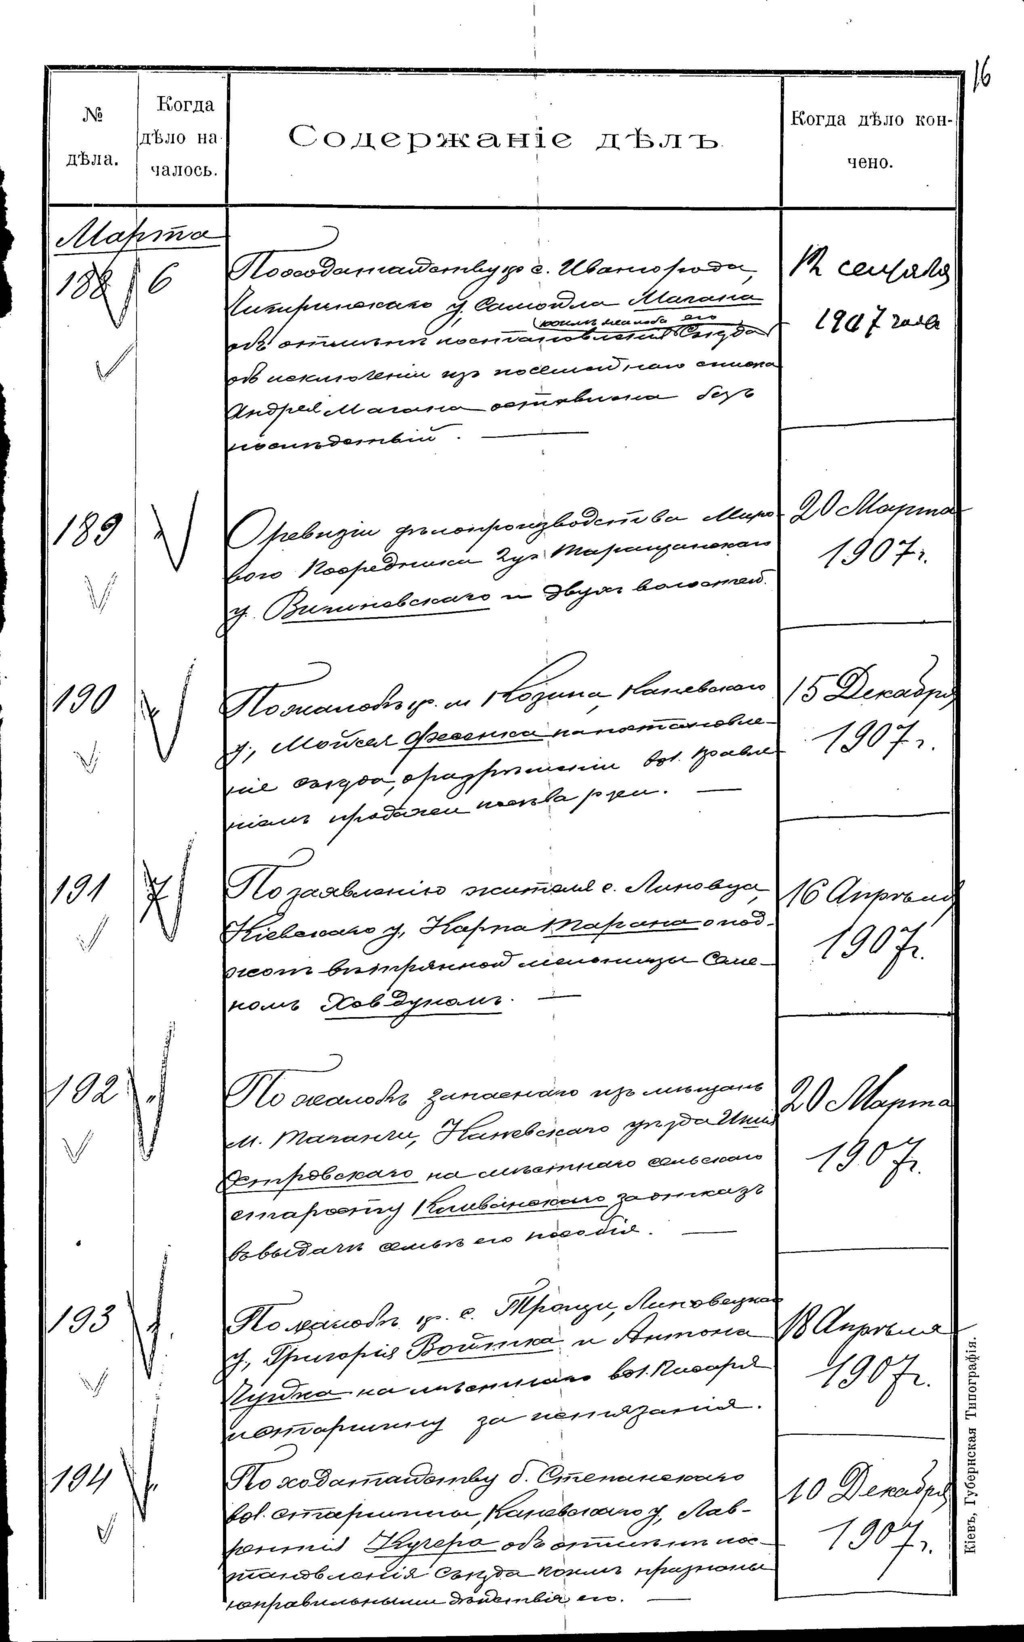 16
№ дѣла.
Когда дѣло началось.
Содержаніе дѣлъ
Когда дѣло кончено.
Марта
188 6
По ходатайству кр. с. Ивангорода,
Чигиринскаго у, Самойла Магана
коимъ жалоба его
объ отмѣнѣ постановленія Съѣзда
объ исключеніи изъ посемейнаго списка
Андрея Магана оставлена безъ
послѣдствій.
12 сентября
1907 года
189 "
О ревизіи дѣлопроизводства Миро-
вого Посредника 2 уч. Таращанскаго
у. и двухъ волостей.
20 Марта
1907 г.
190 "
По жалобѣ кр. м. Козина, Каневскаго
у, Мойсея Фесенка на постановле-
ніе съѣзда, о разрѣшеніи вол. правле-
ніемъ продажи
15 Декабря
1907 г.
191 7
По заявленію жителя с. Липовца,
Кіевскаго у, Карпа Тарана о под-
жогѣ вѣтрянной мельницы Семе-
номъ Ховдуномъ.
16 Апрѣля
1907 г.
192 "
По жалобѣ запаснаго изъ мѣщанъ
м. Таганчи, Каневскаго уѣзда
Островскаго на мѣстнаго сельскаго
старосту за отказъ
въ выдачѣ семьѣ его пособія.
20 Марта
1907 г.
193 "
По жалобѣ кр. с. Троцы, Липовецкаго
у, Григорія Войтка и Антона
на мѣстнаго вол. Писаря
и старшину за истязанія.
18 Апрѣля
1907 г.
194 "
По ходатайству б. Степанскаго
вол. старшины, Каневскаго у, Лав-
рентія Кучера объ отмѣнѣ пос-
тановленія съѣзда коимъ признаны
неправильными дѣйствія его.
10 Декабря
1907 г.
Кіевъ, Губернская Типографія.